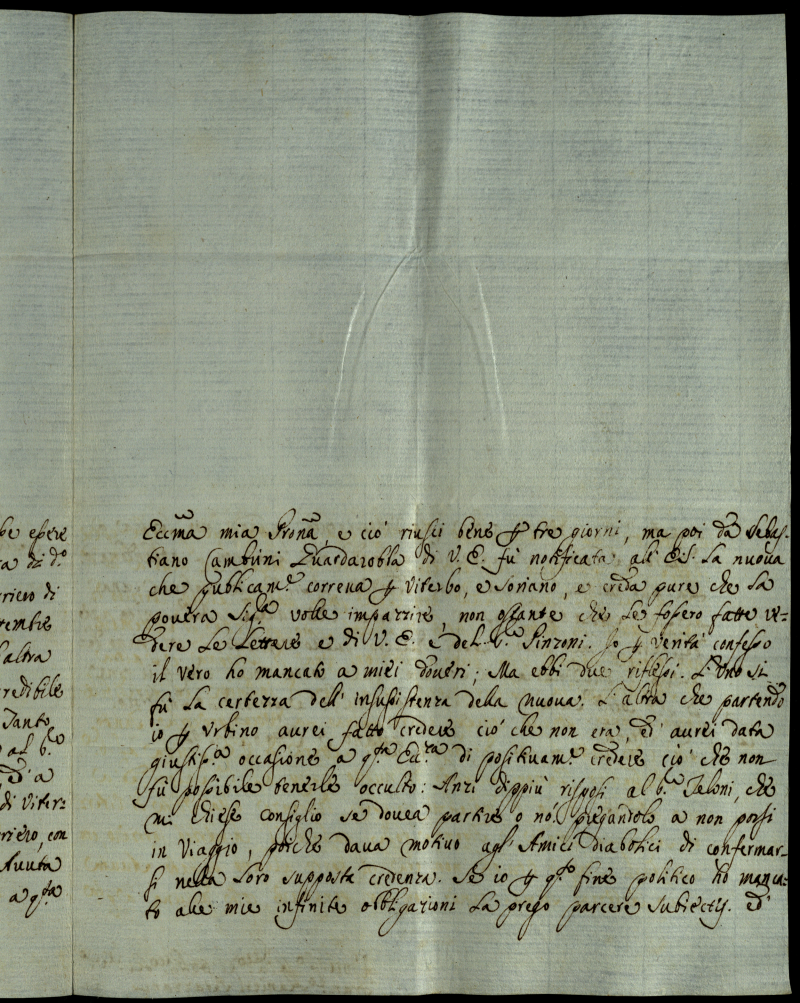 be essere
ra di d.º
rriero di
tembre
l'altra
redibile
Tanto
al b.e
ed' a
di Viter=
rriero, con
Avuta
a q.ta
Ecc.ma mia Prona, e ciò riuscì bene p tre giorni, ma poi da Sebas=
tiano Cambiini Guardarobba di V. E. fù notificata all' E.S. la nuova
che publicam.e correva p Viterbo, e Soriano, e creda pure che la
povera Sig.ra volle impazzire, non ostante che le fossero fatte ve=
dere le Lettere e di V. E. e del S.r Pinzoni. Io p verità confesso
il vero ho mancato a miei doveri; Ma ebbi due riflessi. L'uno si
fù la certezza dell' insussistenza della nuova. L'altra che partendo
io p Urbino aurei fatto credere ciò che non era, ed' aurei data
giustis.a occasione a q.ta Ed.ra di positivam.e credere ciò che non
fù possibile tenerle occulto: Anzi dippiù risposi al b.e Teloni, che
mi chiese consiglio se dovea partire o nò, pregandolo a non porsi
in Viaggio, poiche dava motivo agl' Amici diabolici di confermar=
si nella loro supposta credenza. Se io p q.to fine politico hò manca=
to alle mie infinite obbligazioni la prego parcere subiectis. ed'